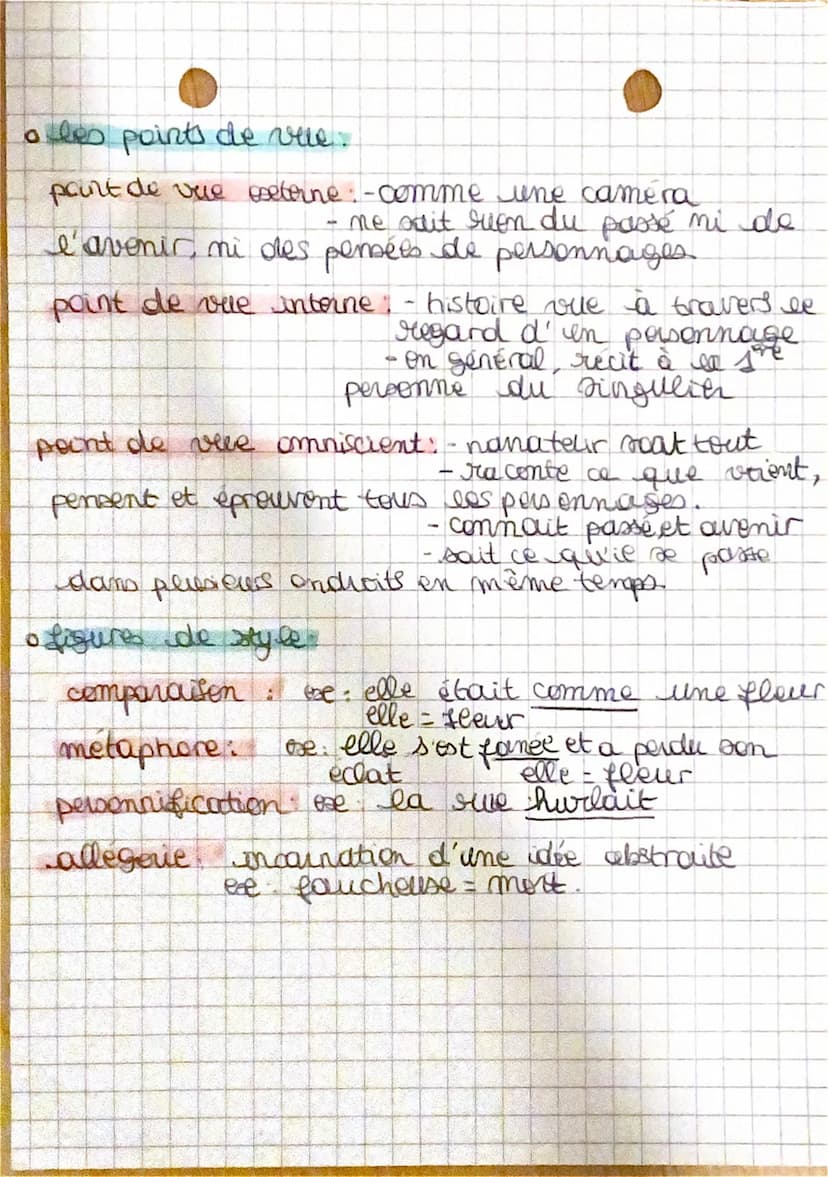 o les points de vue :
point de vue externe : - comme une caméra
- ne sait rien du passé ni de
l'avenir, ni des pensées de personnages
point de vue interne : - histoire vue à travers le
regard d'un personnage
- en général, récit à la 1ère
personne du singulier
point de vue omniscient : - narrateur sait tout
- raconte ce que voient,
pensent et éprouvent tous les personnages.
- connait passé et avenir
- sait ce qu'il se passe
dans plusieurs endroits en même temps.
o figures de style :
comparaison : ex : elle était comme une fleur
elle = fleur
métaphore : ex : elle s'est fanée et a perdu son
éclat elle = fleur
personnification : ex : la rue hurlait
allégorie : incarnation d'une idée abstraite
ex : faucheuse = mort.